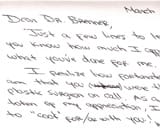 March
Dear Dr Brenner,
Just a few lines to le
you know how much I app
what you've done for me.
I realize how fortunate
am that you were th
plastic surgeon on call. As a
token of my appreciation
to "cool for/as with you!